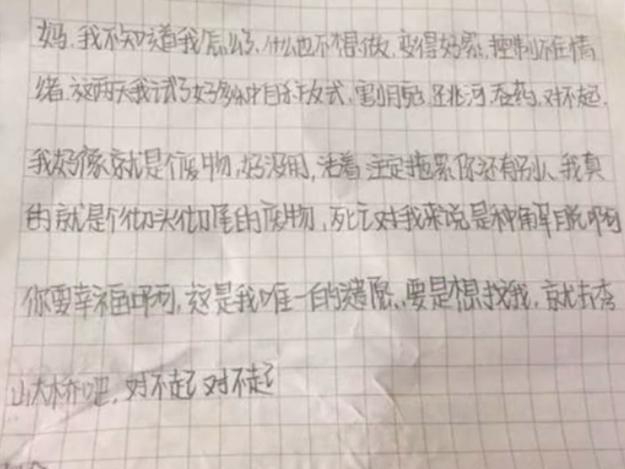 妈，我不知道我怎么了，什么也不想做，变得好累，控制不住情
绪，这两天我试了好多种自杀方式，割腕，跳河，吞药，对不起，
我好像就是个废物，好没用，活着注定拖累你还有别人，我真
的就是个彻头彻尾的废物，死亡对我来说是种解脱啊
你要幸福啊，这是我唯一的遗愿，要是想找我，就去秀
山大桥吧，对不起 对不起